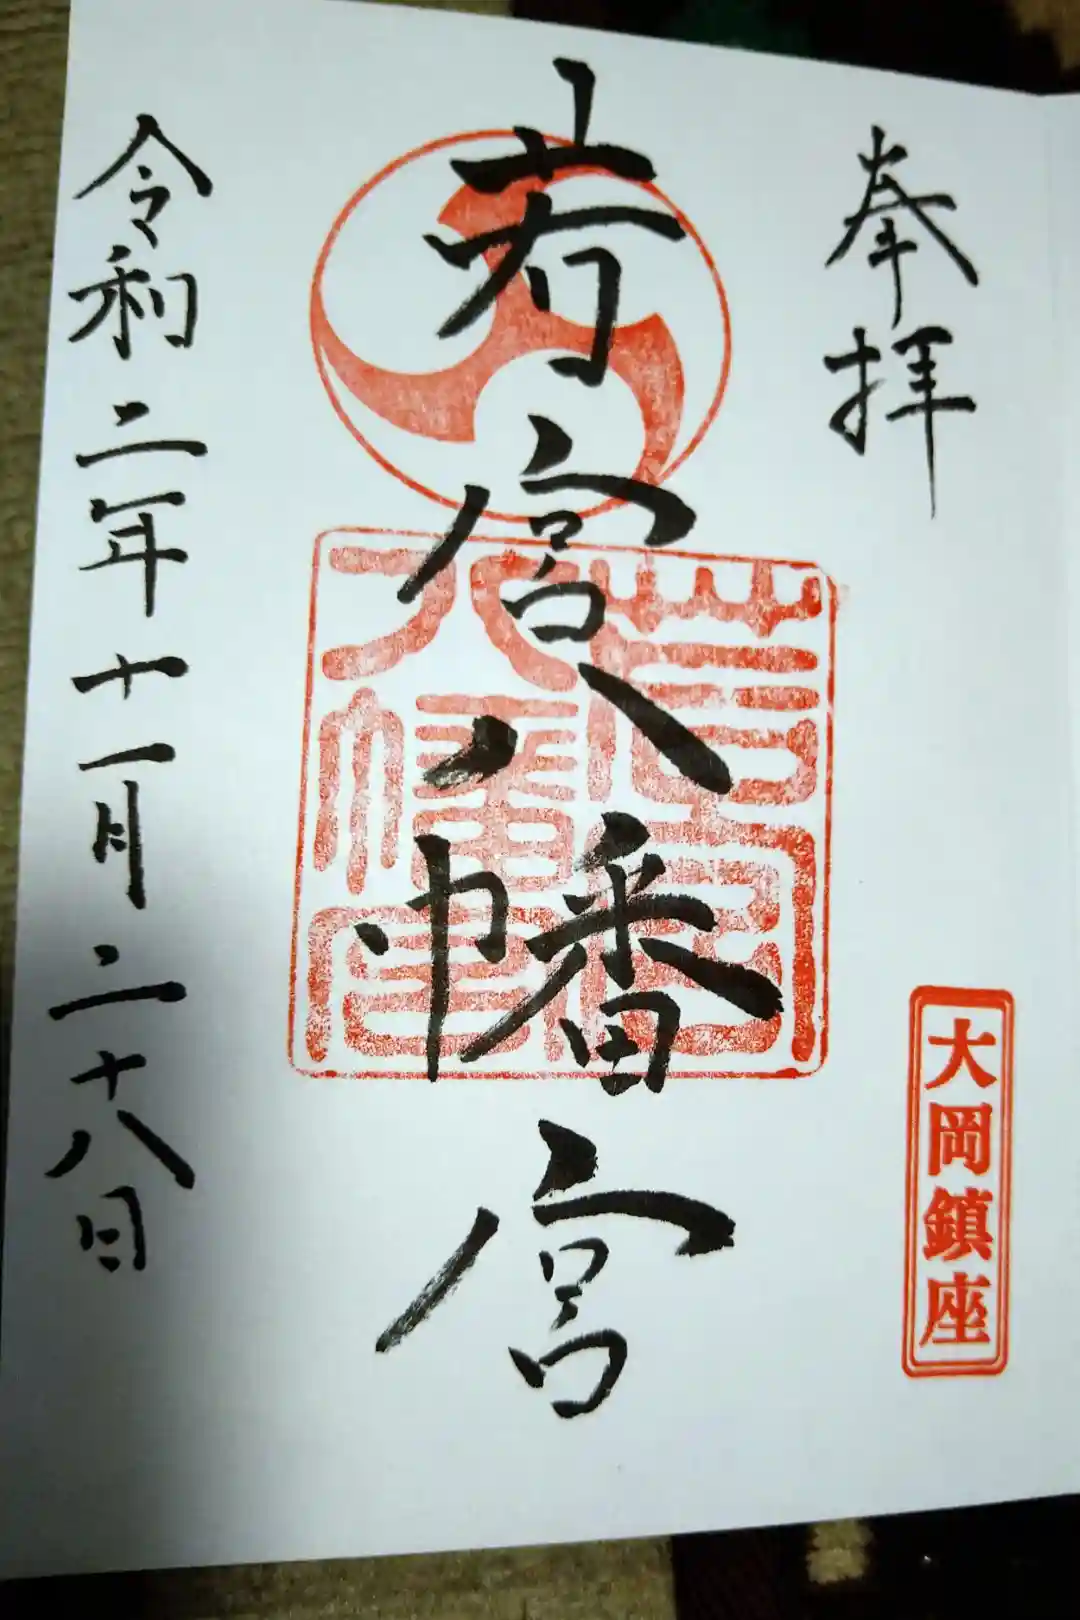 奉拝
大岡鎮座
若宮八幡宮
若宮八幡宮
令和二年十一月二十八日